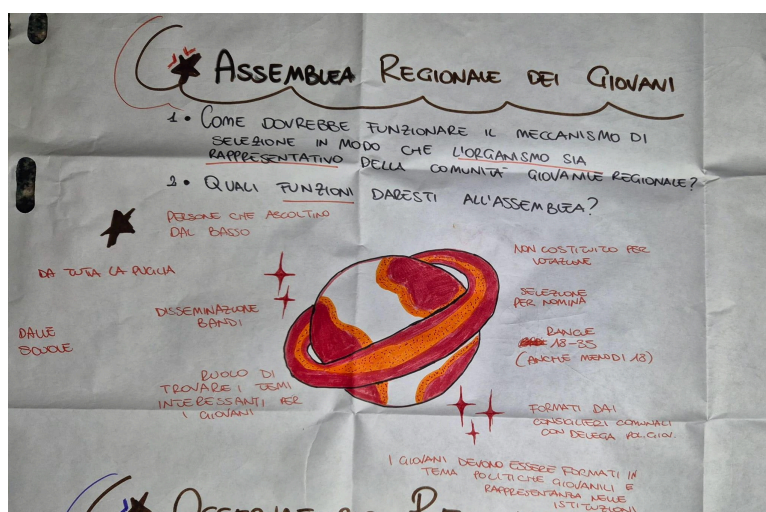 ASSEMBLEA REGIONALE DEI GIOVANI
1. COME DOVREBBE FUNZIONARE IL MECCANISMO DI
SELEZIONE IN MODO CHE L'ORGANISMO SIA
RAPPRESENTATIVO DELLA COMUNITÀ GIOVANILE REGIONALE?
2. QUALI FUNZIONI DARESTI ALL'ASSEMBLEA?
PERSONE CHE ASCOLTINO
DAL BASSO
DA TUTTA LA PUGLIA
DISSEMINAZIONE
BANDI
DALLE
SCUOLE
RUOLO DI
TROVARE I TEMI
INTERESSANTI PER
I GIOVANI
NON COSTITUITO PER
VOTAZIONE
SELEZIONE
PER NOMINA
RANGE
18-35
(ANCHE MENO DI 18)
FORMATI DAI
CONSIGLIERI COMUNALI
CON DELEGA POL.GIOV.
I GIOVANI DEVONO ESSERE FORMATI IN
TEMA POLITICHE GIOVANILI E
RAPPRESENTANZA NELLE
ISTITUZIONI